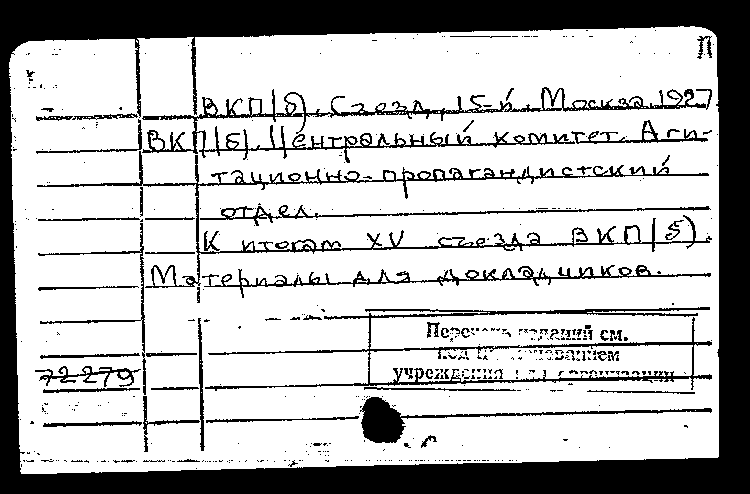 П
ВКП(б). Съезд, 15-й. Москва. 1927.
ВКП(б). Центральный комитет. Аги-
тационно-пропагандистский
отдел.
К итогам XV съезда ВКП(б).
Материалы для докладчиков.
Перечень изданий см.
под наименованием
учреждения или организации
72279